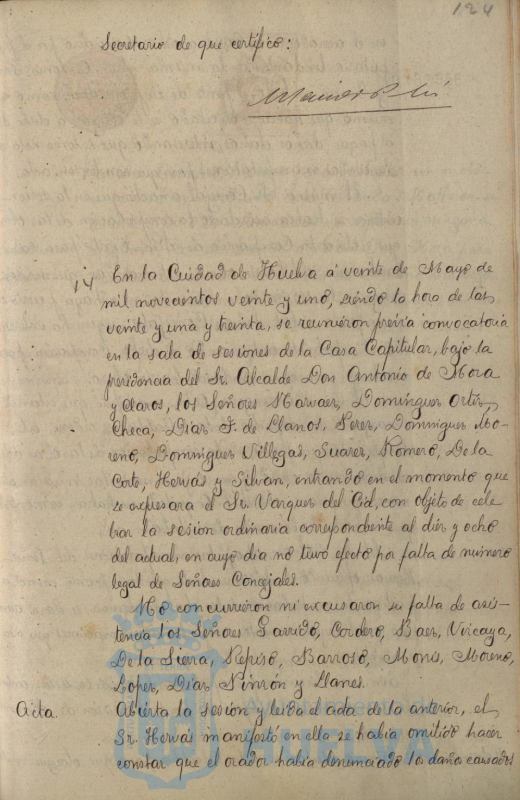 124
Secretario de que certifico:
14 En la Ciudad de Huelva á veinte de Mayo de
mil novecientos veinte y uno, siendo la hora de las
veinte y una y treinta, se reunieron previa convocatoria
en la sala de sesiones de la Casa Capitular, bajo la
presidencia del Sr. Alcalde Don Antonio de Mora
y Claros, los Señores Narvaez, Dominguez Ortiz,
Checa, Diaz F. de Llanos, Perez, Dominguez Mo-
reno, Dominguez Villegas, Suarez, Romero, De la
Corte, Hervás y Silvan, entrando en el momento que
se expresara el Sr. Vazquez del Cid, con objeto de cele
brar la sesión ordinaria correspondiente al diez y ocho
del actual, en cuyo dia no tuvo efecto por falta de número
legal de Señores Concejales.
No concurrieron ni excusaron su falta de asis-
tencia los Señores Garrido, Cordero, Baez, Vizcaya,
De la Sierra, Repiso, Barroso, Monis, Moreno,
Lopez, Diaz Pinzón y Llanes.
Acta. Abierta la sesión y leida el acta de la anterior, el
Sr. Hervás manifestó en ella se habia omitido hacer
constar que el orador habia denunciado los daños causados
HUELVA